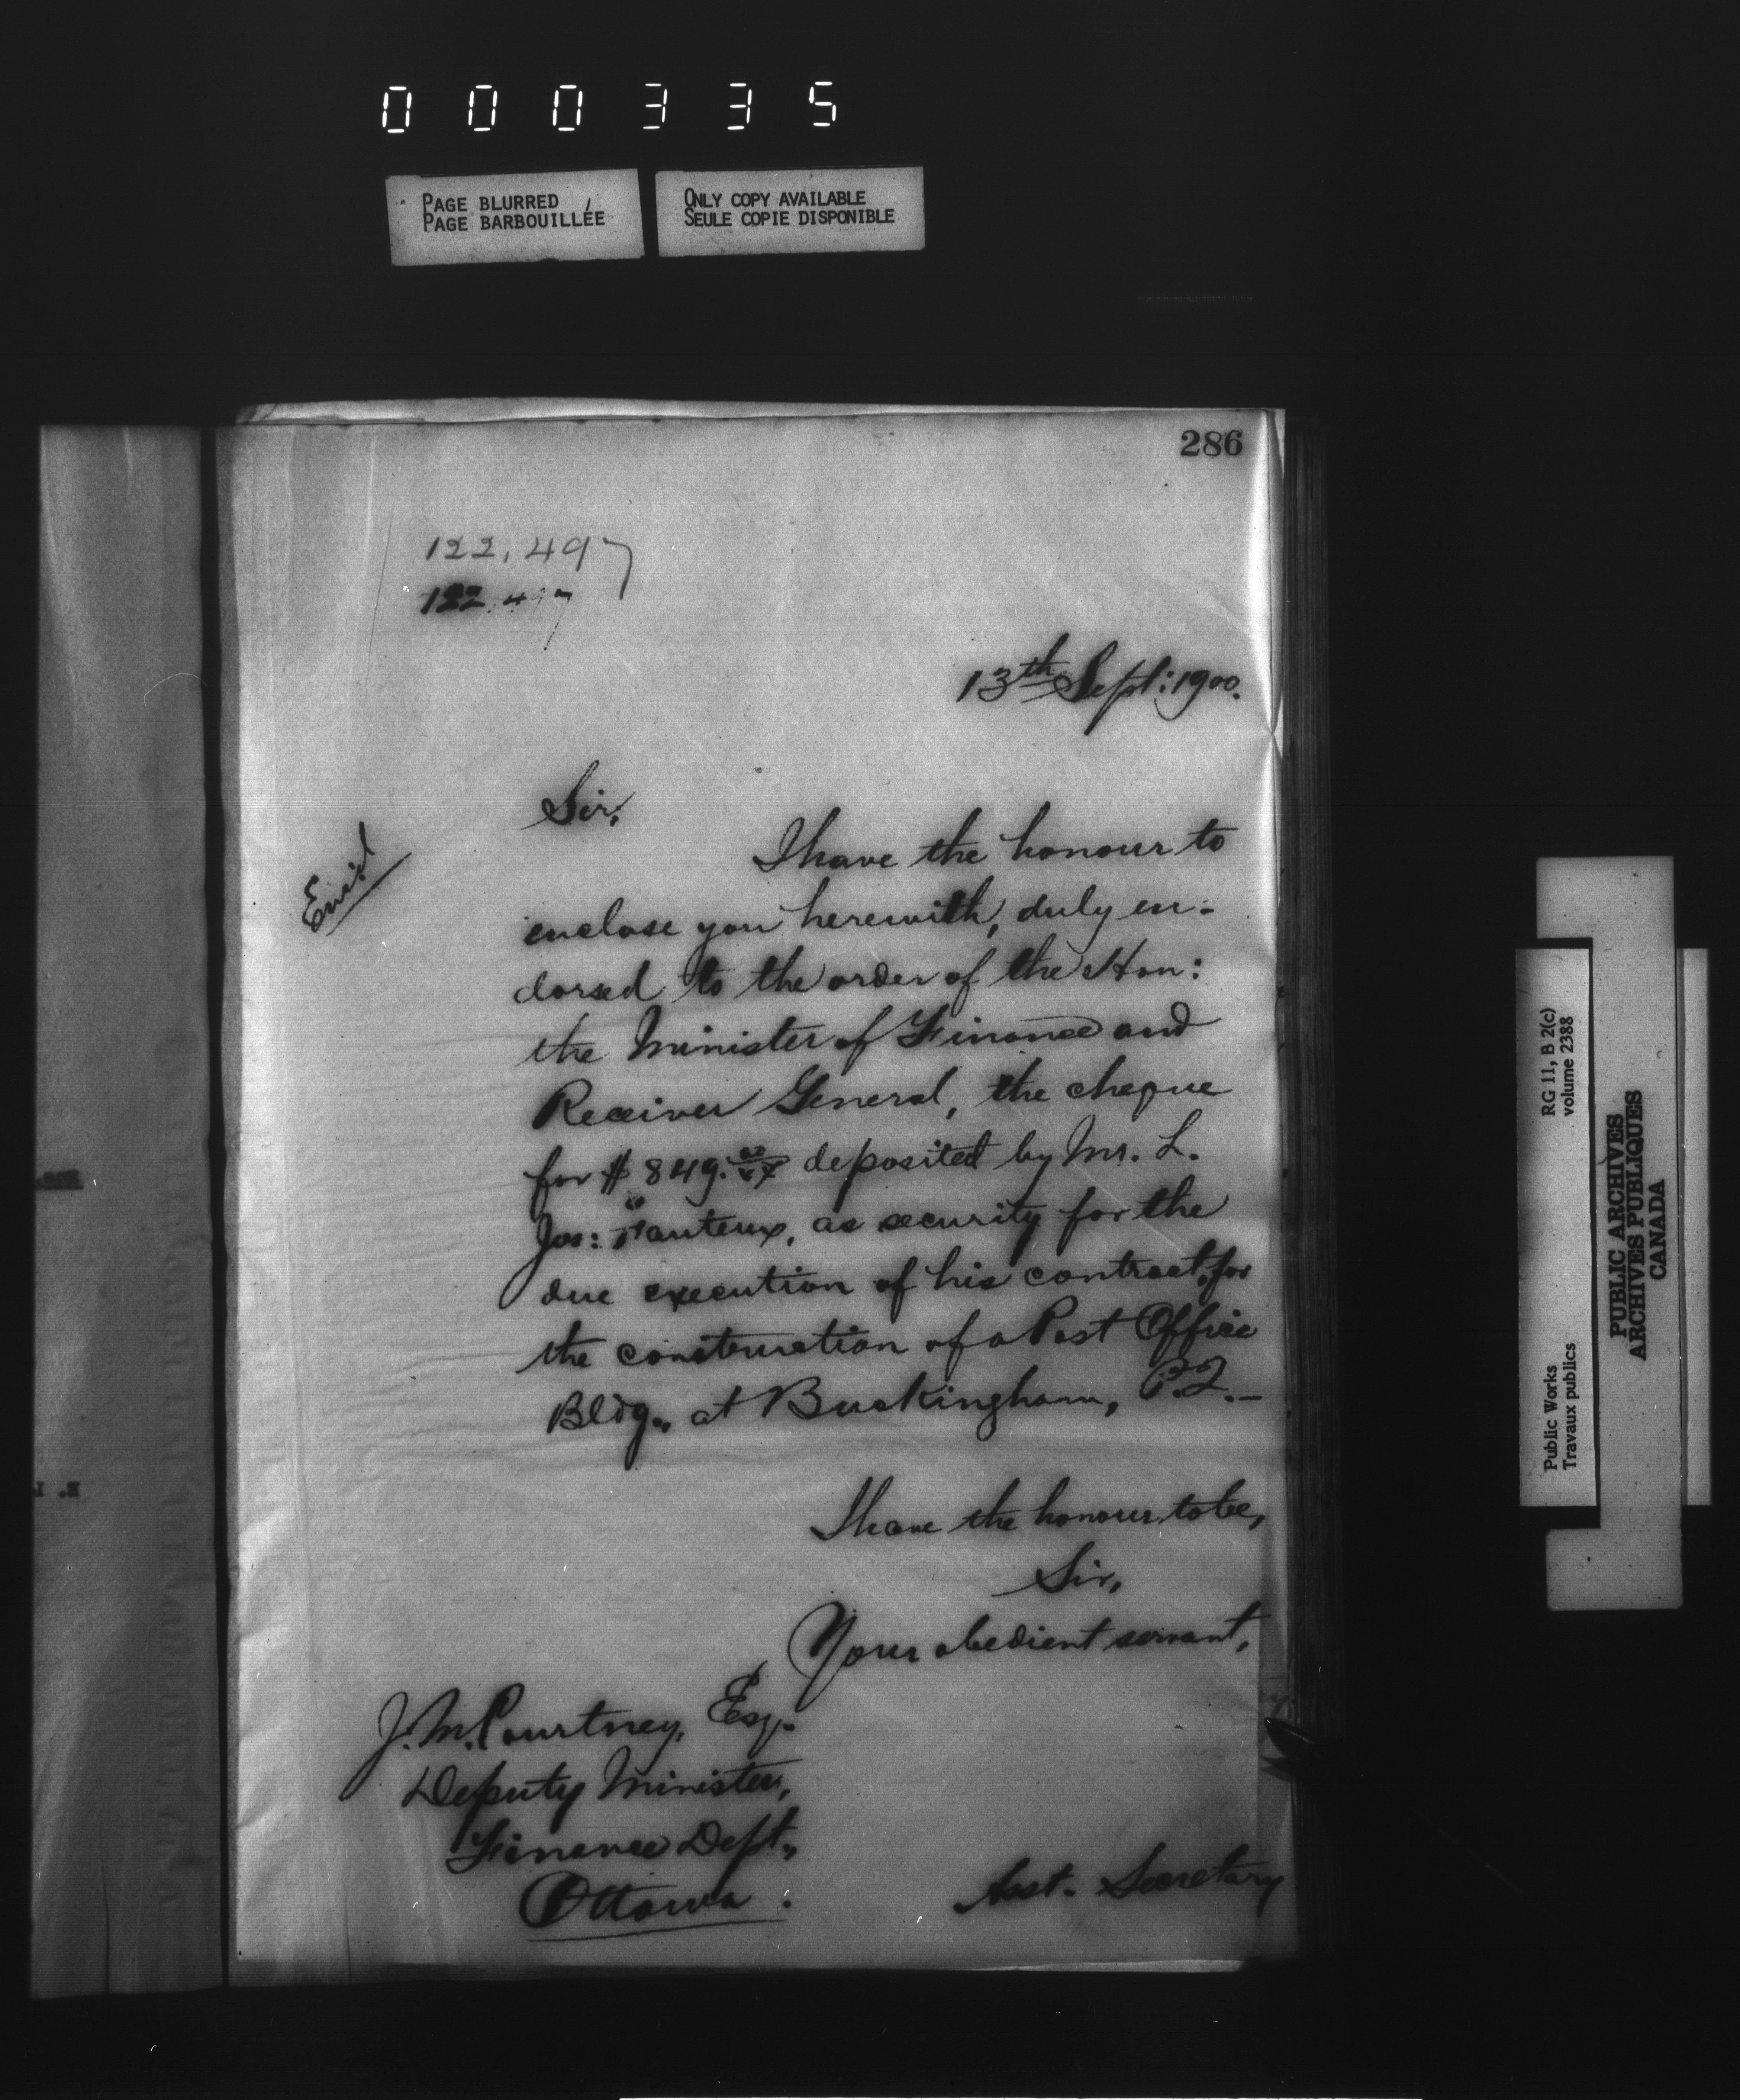 000335
PAGE BLURRED
PAGE BARBOUILLÉE
ONLY COPY AVAILABLE
SEULE COPIE DISPONIBLE
286
122,497
122,497
13th Sept: 1900.
Sir,
I have the honour to
enclose you herewith, duly en-
dorsed to the order of the Hon:
the Minister of Finance and
Receiver General, the cheque
for $849. deposited by Mr. L.
Jos: Fauteux, as security for the
due execution of his contract, for
the construction of a Post Office
Bldg., at Buckingham, P.Q.—
I have the honour to be,
Sir,
Your obedient servant,
J. M. Courtney, Esq.
Deputy Minister,
Finance Dept.,
Ottawa.
Asst. Secretary
RG 11, B 2(c)
volume 2388
Public Works
Travaux publics
PUBLIC ARCHIVES
ARCHIVES PUBLIQUES
CANADA